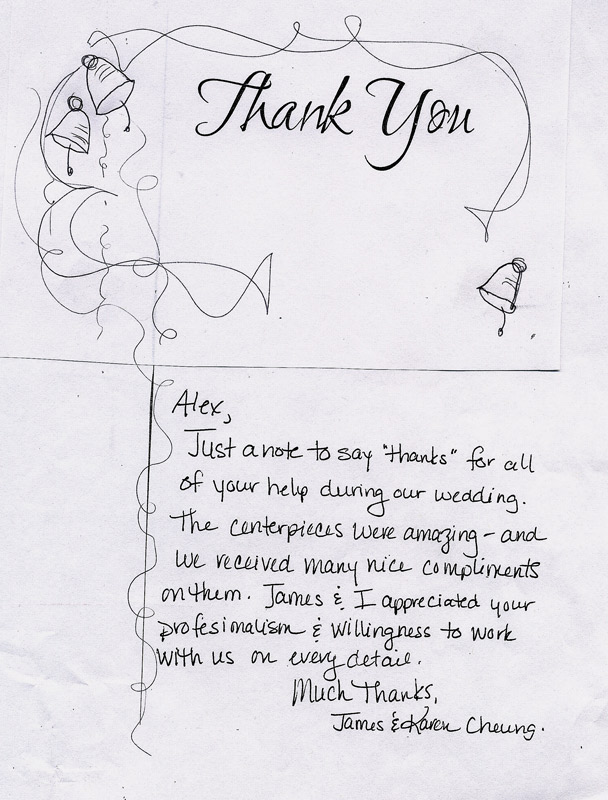 Thank You
Alex,
Just a note to say "thanks" for all
of your help during our wedding.
The centerpieces were amazing - and
we received many nice compliments
on them. James & I appreciated your
profesionalism & willingness to work
with us on every detail.
Much Thanks,
James & Karen Cheung.